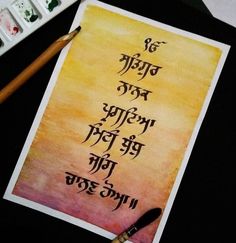 ੴ
ਸਤਿਗੁਰ
ਨਾਨਕ
ਪ੍ਰਗਟਿਆ
ਮਿਟੀ ਧੁੰਧ
ਜਗਿ
ਚਾਨਣੁ ਹੋਆ॥